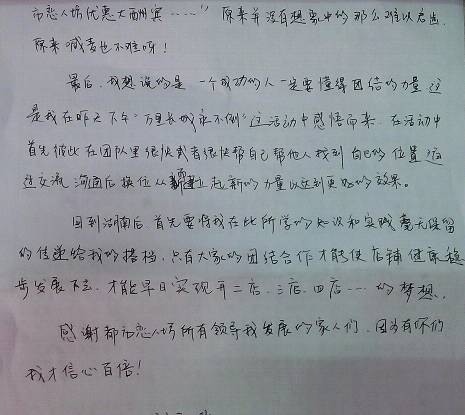 市恋人坊优惠大酬宾……” 原来并没有想象中的那么难以启齿
原来喊着也不难呀！
最后，我想说的是 一个成功的人一定要懂得团结的力量 这
是我在昨天下午“万里长城永不倒”这活动中感悟而来。在活动中
首先彼此在团队里很快或者很快帮自己帮他人找到自己的位置
交流 沟通后换位从 起新的力量以达到更好的效果。
回到湖南后 首先要将我在此所学的知识和实践毫无保留
的传递给我的搭档，只有大家的团结合作才能使店铺健康稳
步发展下去，才能早日实现开二店、三店、四店……的梦想。
感谢都市恋人坊所有领导我发展的家人们，因为有你们
我才信心百倍！